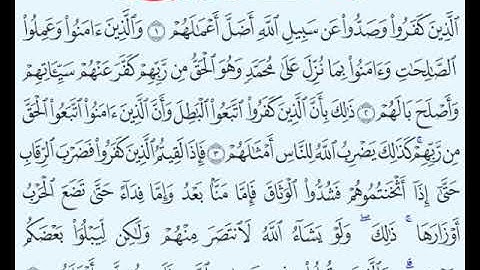 ٱلَّذِينَ كَفَرُوا۟ وَصَدُّوا۟ عَن سَبِيلِ ٱللَّهِ أَضَلَّ أَعْمَٰلَهُمْ ۝١ وَٱلَّذِينَ ءَامَنُوا۟ وَعَمِلُوا۟
ٱلصَّٰلِحَٰتِ وَءَامَنُوا۟ بِمَا نُزِّلَ عَلَىٰ مُحَمَّدٍ وَهُوَ ٱلْحَقُّ مِن رَّبِّهِمْ كَفَّرَ عَنْهُمْ سَيِّـَٔاتِهِمْ
وَأَصْلَحَ بَالَهُمْ ۝٢ ذَٰلِكَ بِأَنَّ ٱلَّذِينَ كَفَرُوا۟ ٱتَّبَعُوا۟ ٱلْبَٰطِلَ وَأَنَّ ٱلَّذِينَ ءَامَنُوا۟ ٱتَّبَعُوا۟ ٱلْحَقَّ
مِن رَّبِّهِمْ ۚ كَذَٰلِكَ يَضْرِبُ ٱللَّهُ لِلنَّاسِ أَمْثَٰلَهُمْ ۝٣ فَإِذَا لَقِيتُمُ ٱلَّذِينَ كَفَرُوا۟ فَضَرْبَ ٱلرِّقَابِ
حَتَّىٰٓ إِذَآ أَثْخَنتُمُوهُمْ فَشُدُّوا۟ ٱلْوَثَاقَ فَإِمَّا مَنًّۢا بَعْدُ وَإِمَّا فِدَآءً حَتَّىٰ تَضَعَ ٱلْحَرْبُ
أَوْزَارَهَا ۚ ذَٰلِكَ ۖ وَلَوْ يَشَآءُ ٱللَّهُ لَٱنتَصَرَ مِنْهُمْ وَلَٰكِن لِّيَبْلُوَا۟ بَعْضَكُم